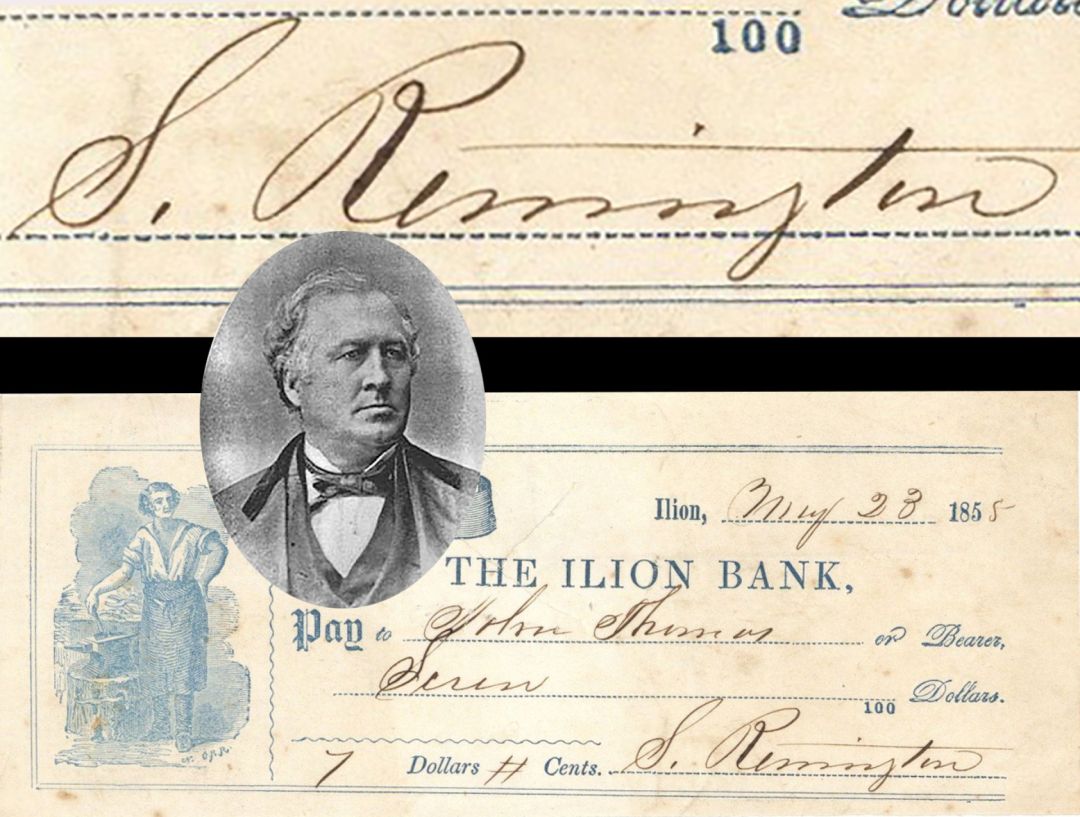 Dollars
100
S. Remington
Ilion, May 23 1855
THE ILION BANK,
Pay to John Thomas or Bearer,
Seven
100 Dollars.
7 Dollars # Cents. S. Remington
N. ORR